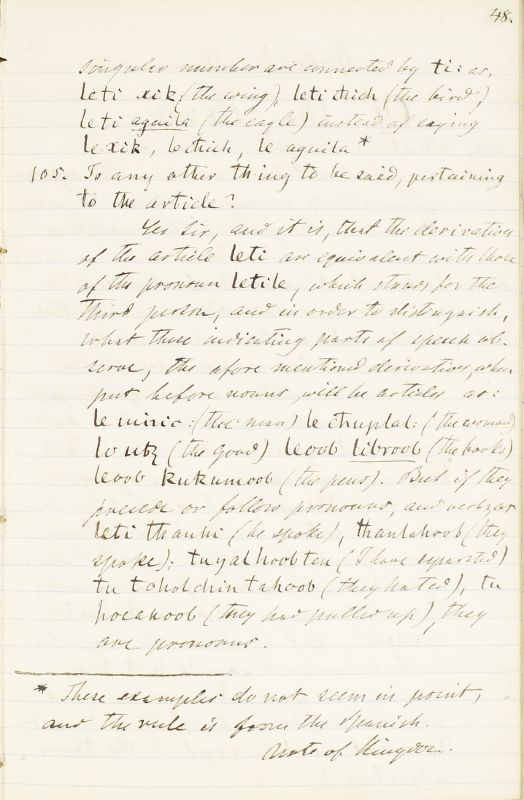 48.
singular number are connected by ti: as,
leti xik (the wing), leti chich (the bird)
leti aguila (the eagle) instead of saying
lexik, lechich, le aguila *
105. To any other thing to be said, pertaining
to the article?
Yes Sir, and it is, that the derivatives
of the article leti are equivalent with those
of the pronoun letile, which stands for the
third person, and in order to distinguish,
what these indicating parts of speech ob-
serve, the afore mentioned derivatives, when
put before nouns, will be articles as:
le winic: (the man) le chuplal: (the woman)
lo utz (the good) leoob libroob (the books)
leoob kukumoob (the pens). But if they
precede or follow pronouns, and verbs, as
leti thanhi (he spoke), thanlahoob (they
spoke): tuyalhoobten (I have separated)
tu toholchintahoob (they hated), tu
hocahoob (they had pulled up), they
are pronouns.
* These examples do not seem in point,
and the rule is from the Spanish.
Note of Kingdon.